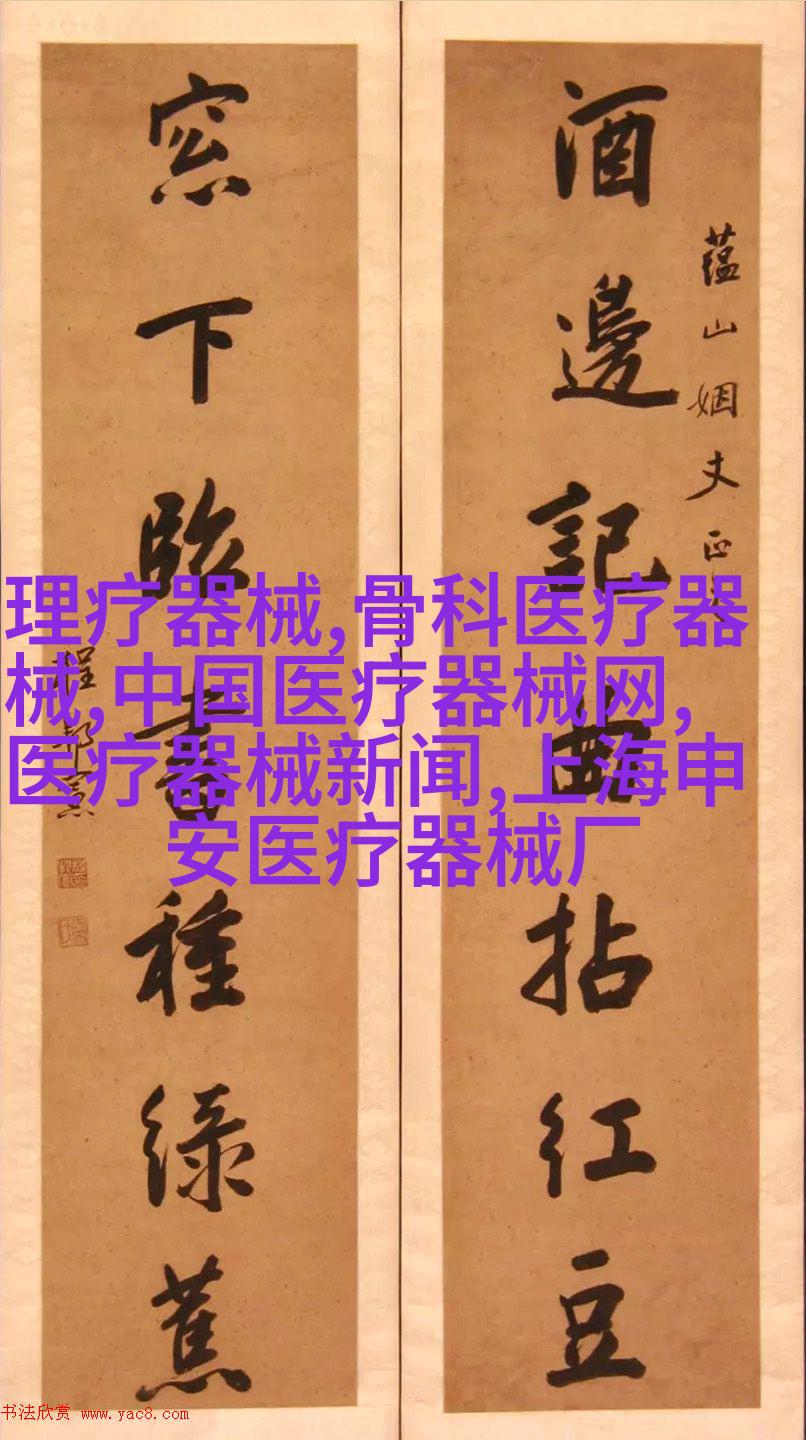 酒邊記曲拈紅豆
蘊山姻丈正
窓下臨書種綠蕉
程邦憲
理疗器械,骨科医疗器
械,中国医疗器械网,
医疗器械新闻,上海申
安医疗器械厂
书法欣赏 www.yac8.com